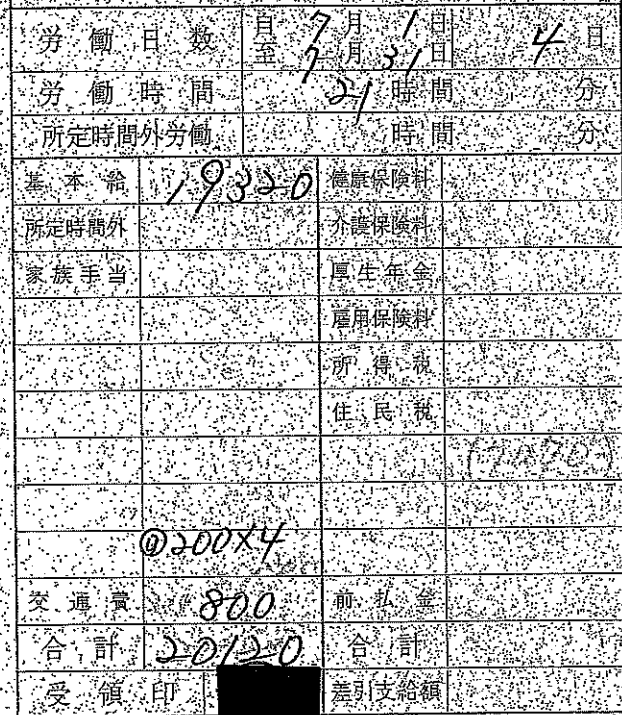 労働日数 自 7月 1日 至 7月 31日 4日
労働時間 21時間 分
所定時間外労働 時間 分
基本給 19320 健康保険料
所定時間外 介護保険料
家族手当 厚生年金
雇用保険料
所得税
住民税
@200×4
交通費 800 前払金
合計 20120 合計
受領印 差引支給額